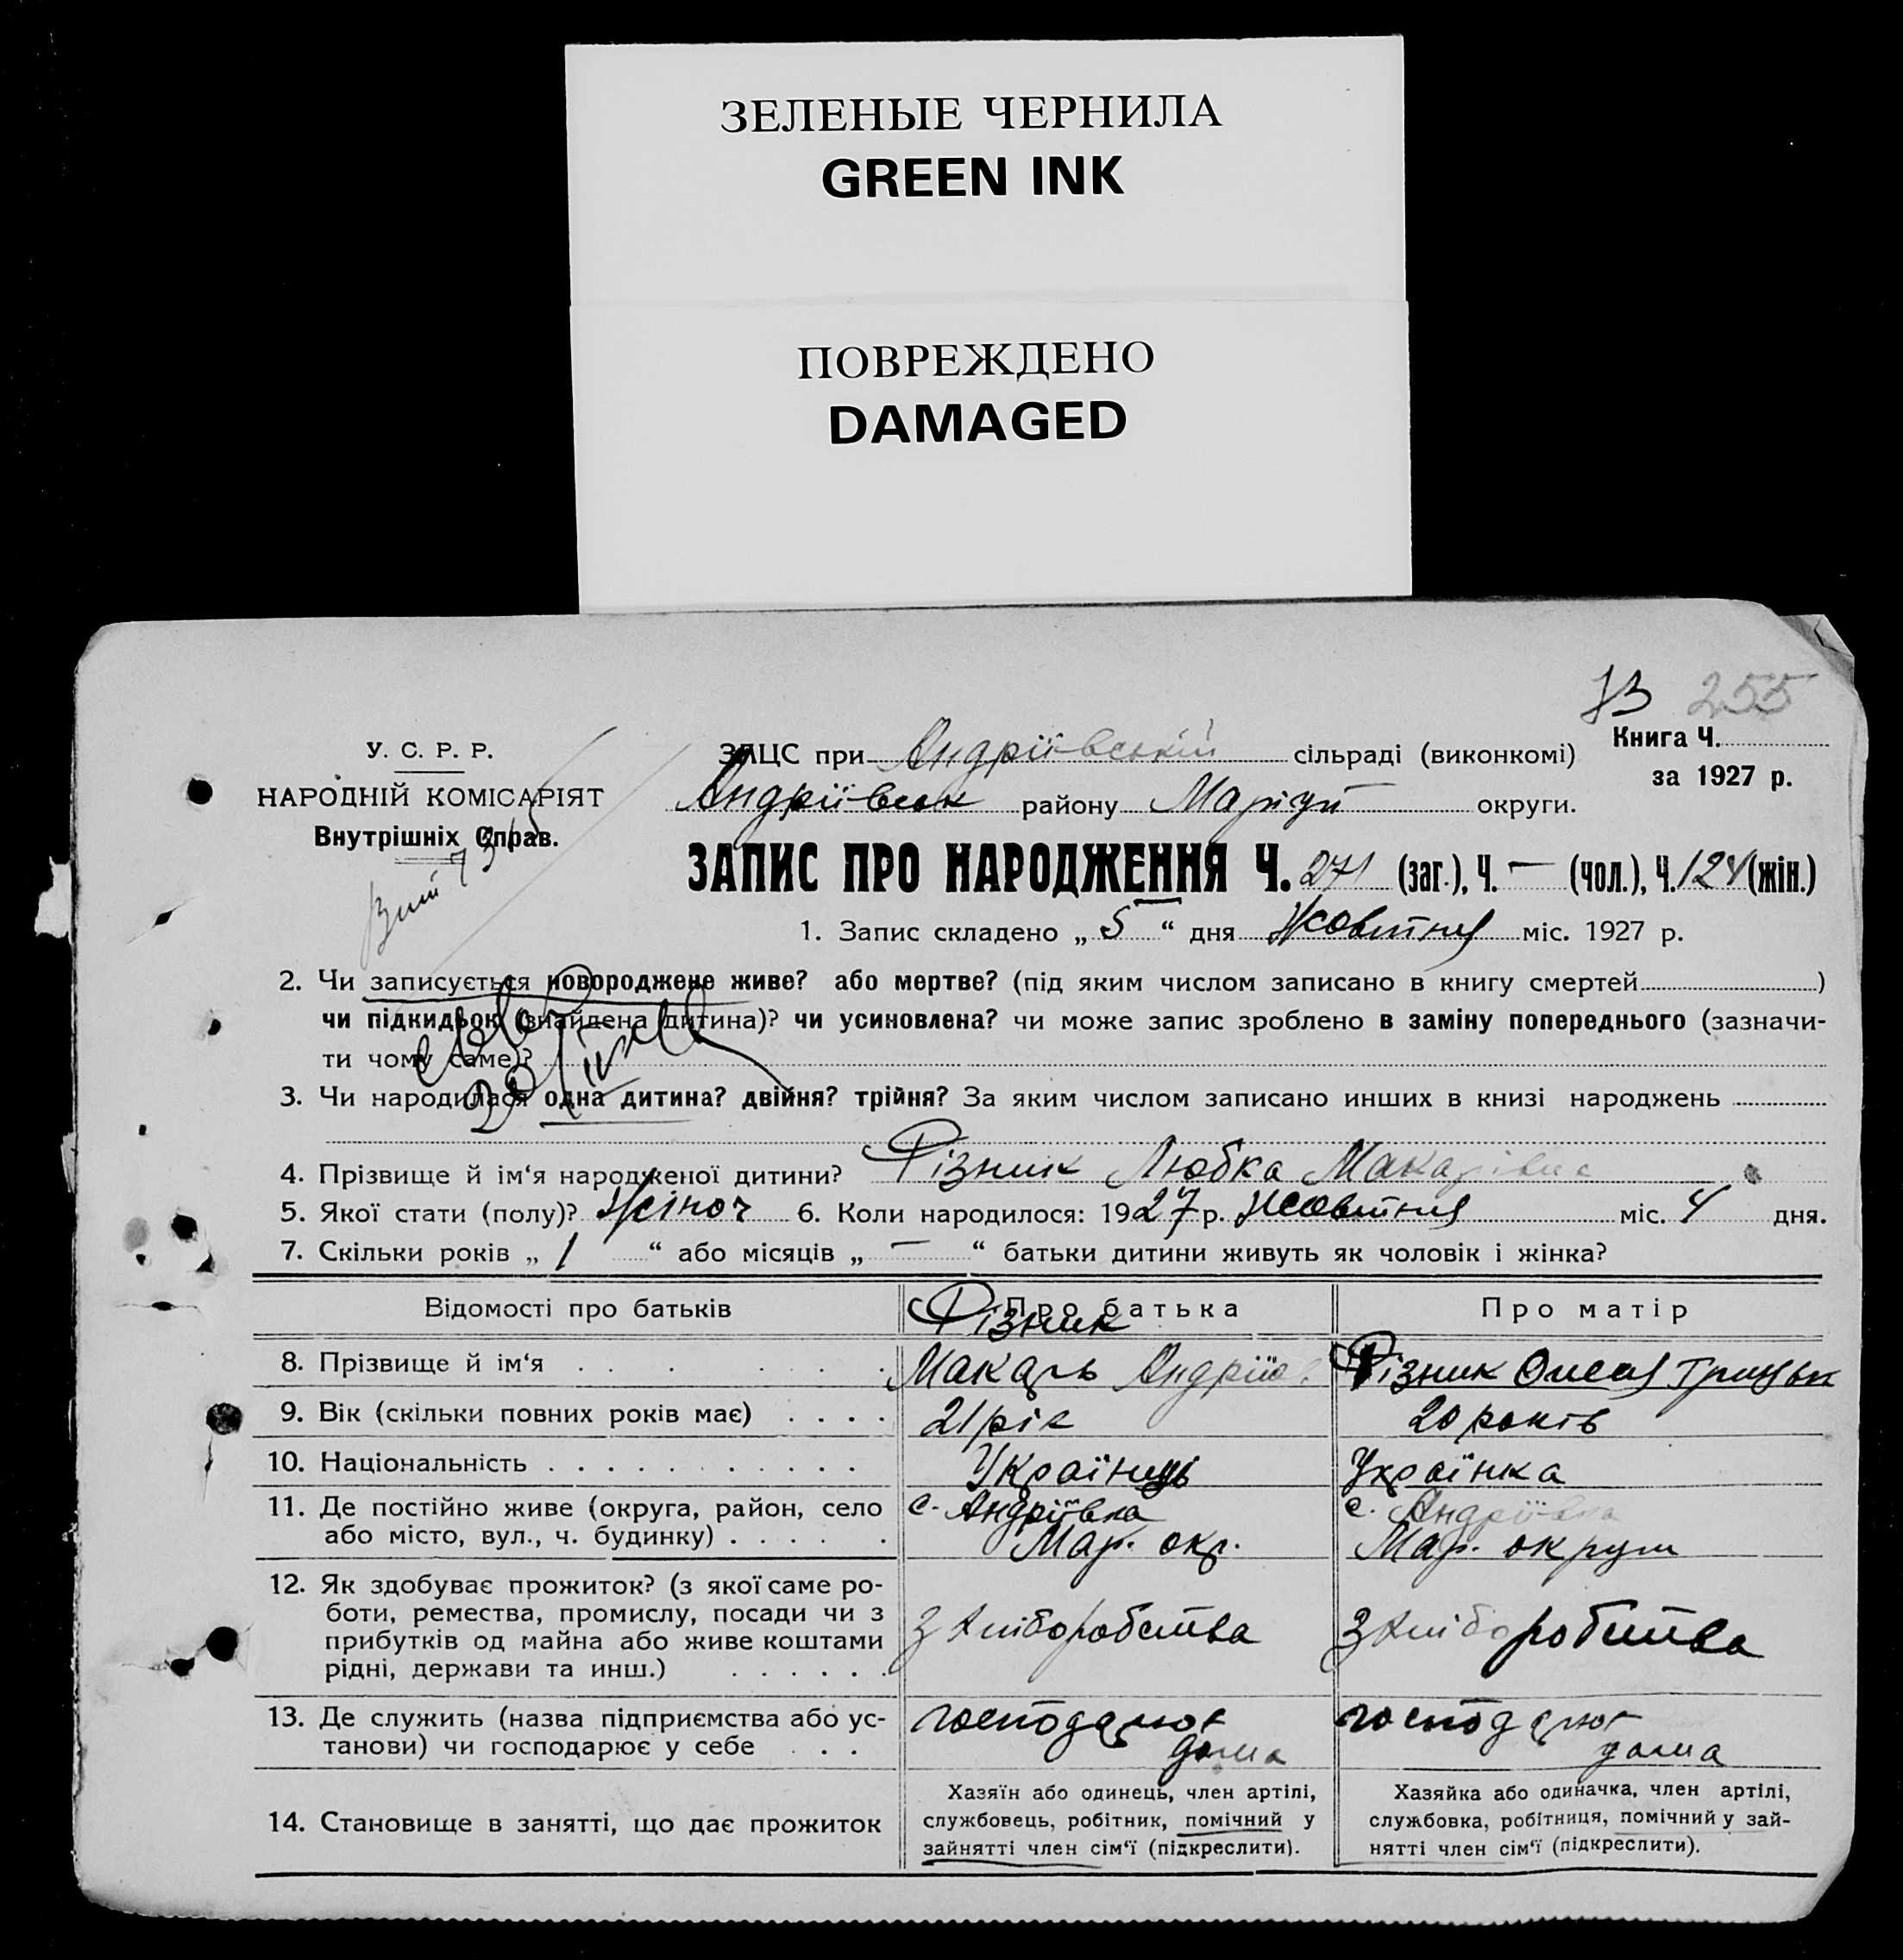 ЗЕЛЕНЫЕ ЧЕРНИЛА
GREEN INK
ПОВРЕЖДЕНО
DAMAGED
73 255
У. С. Р. Р.
НАРОДНІЙ КОМІСАРІЯТ
Внутрішніх Справ.
ЗАЦС при Андріївській сільраді (виконкомі)
Книга Ч.
за 1927 р.
Андріївськ району Маріуп округи.
ЗАПИС ПРО НАРОДЖЕННЯ Ч. 271 (заг.), Ч. — (чол.), Ч. 124 (жін.)
1. Запис складено „ 5 “ дня Жовтня міс. 1927 р.
2. Чи записується новороджене живе? або мертве? (під яким числом записано в книгу смертей )
чи підкидьок (знайдена дитина)? чи усиновлена? чи може запис зроблено в заміну попереднього (зазначи-
ти чому саме)?
3. Чи народилася одна дитина? двійня? трійня? За яким числом записано инших в книзі народжень
4. Прізвище й ім‘я народженої дитини? Різник Любка Макарівна
5. Якої стати (полу)? Жіноч 6. Коли народилося: 1927 р. Жовтня міс. 4 дня.
7. Скільки років „ 1 “ або місяців „ — “ батьки дитини живуть як чоловік і жінка?
Відомості про батьків Про батька Про матір
Різник
8. Прізвище й ім‘я Макарь Андріїв Різник Олеся Грицьк
9. Вік (скільки повних років має) 21 рік 20 років
10. Національність Українць Українка
11. Де постійно живе (округа, район, село с. Андріївка с. Андріївка
або місто, вул., ч. будинку) Мар. окр. Мар. округи
12. Як здобуває прожиток? (з якої саме ро-
боти, ремества, промислу, посади чи з з хліборобства з хліборобства
прибутків од майна або живе коштами
рідні, держави та инш.)
13. Де служить (назва підприємства або ус- господарює господарює
танови) чи господарює у себе дома дома
14. Становище в занятті, що дає прожиток
Хазяїн або одинець, член артілі,
службовець, робітник, помічний у
зайнятті член сім‘ї (підкреслити).
Хазяйка або одиначка, член артілі,
службовка, робітниця, помічний у зай-
нятті член сім‘ї (підкреслити).